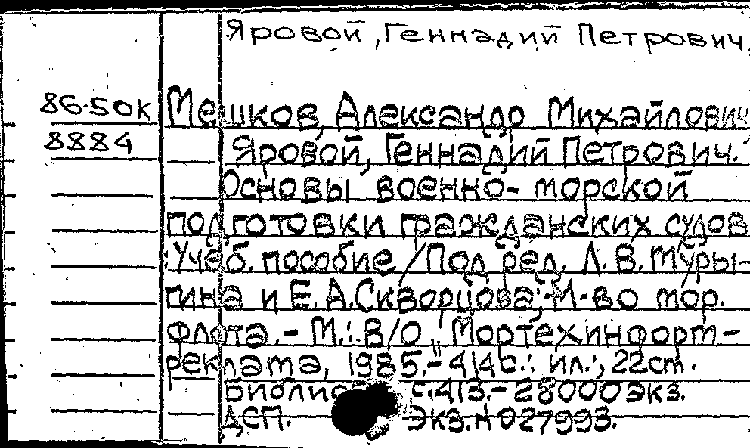 Яровой, Геннадий Петрович.
86-50К Мешков, Александр Михайлович
8884 Яровой, Геннадий Петрович.
Основы военно-морской
подготовки гражданских судов
: Учеб. пособие / Под ред. Л. В. Муры-
гина и Е. А. Скворцова; М-во мор.
флота. - М.: В/О "Мортехинформ-
реклама, 1985. - 414с.: ил.; 22см.
с.413. - 28000 экз.
ДСП. Экз. N 027993.